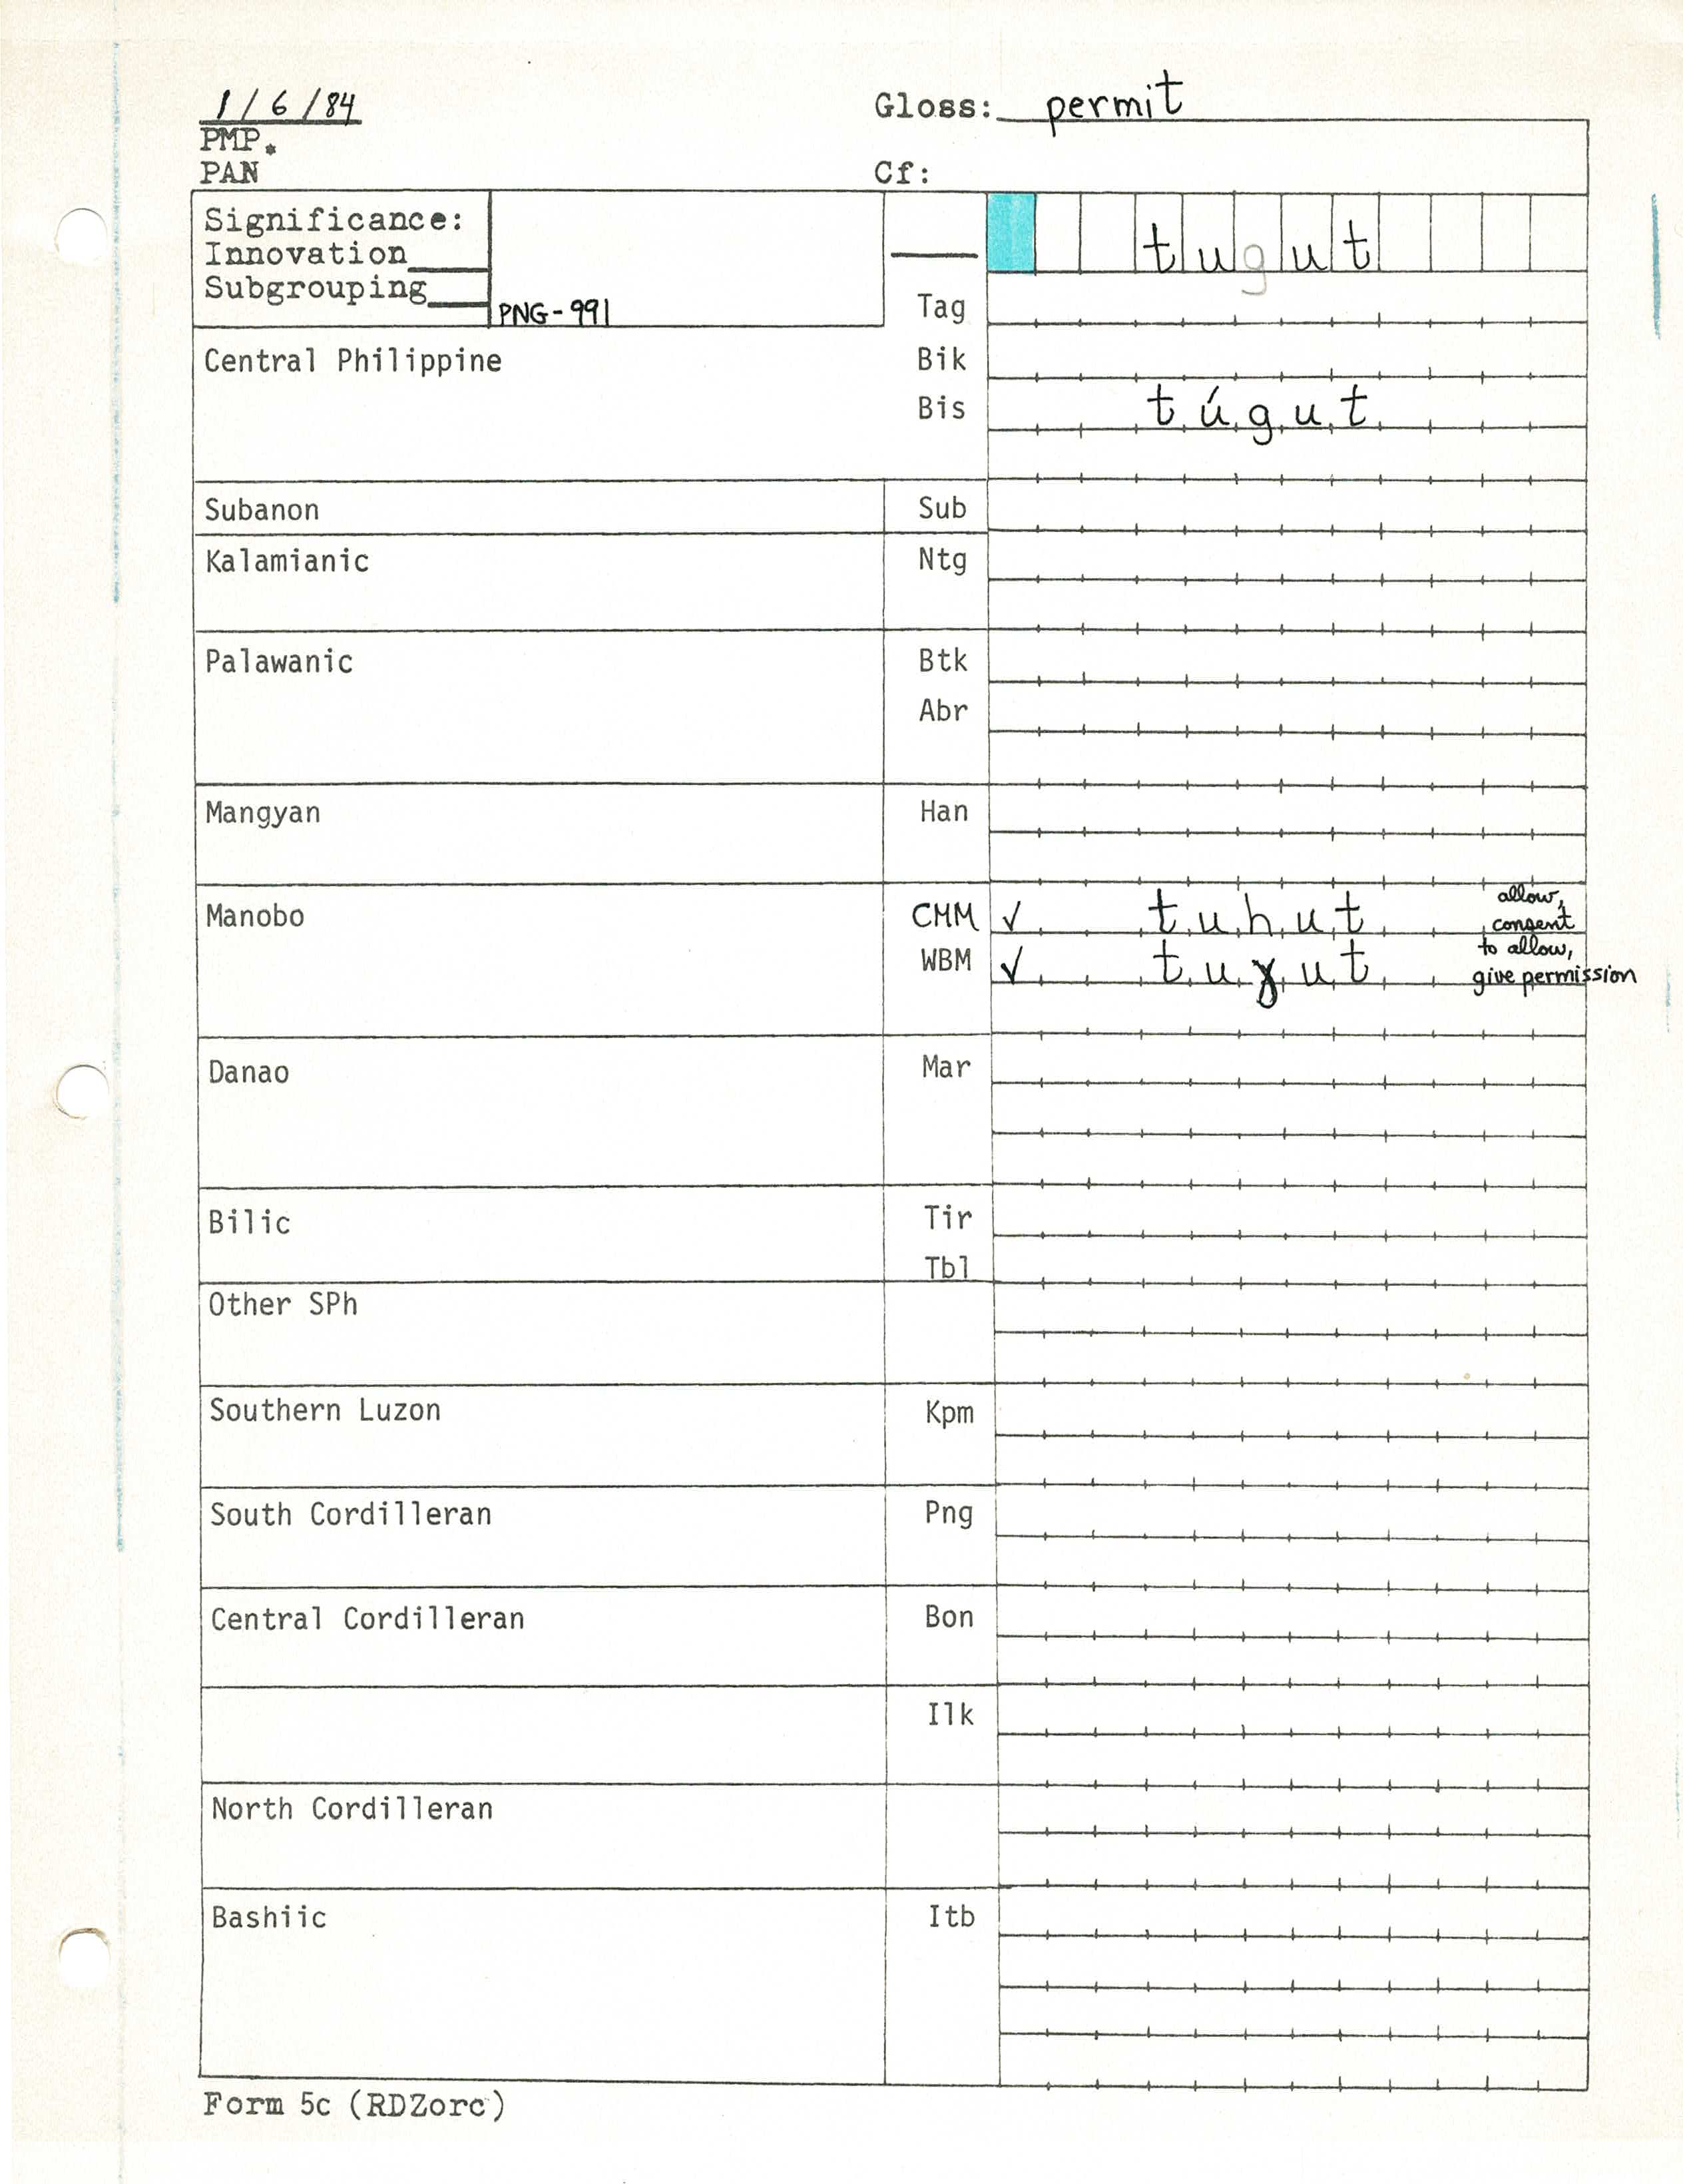 1/6/84 Gloss: permit
PMP.
PAN Cf:
Significance:
Innovation
Subgrouping
PNG-991
tugut
Tag
Central Philippine Bik
Bis túgut
Subanon Sub
Kalamianic Ntg
Palawanic Btk
Abr
Mangyan Han
Manobo CMM ✓ tuhut allow, consent
WBM ✓ tuɣut to allow, give permission
Danao Mar
Bilic Tir
Tbl
Other SPh
Southern Luzon Kpm
South Cordilleran Png
Central Cordilleran Bon
Ilk
North Cordilleran
Bashiic Itb
Form 5c (RDZorc)